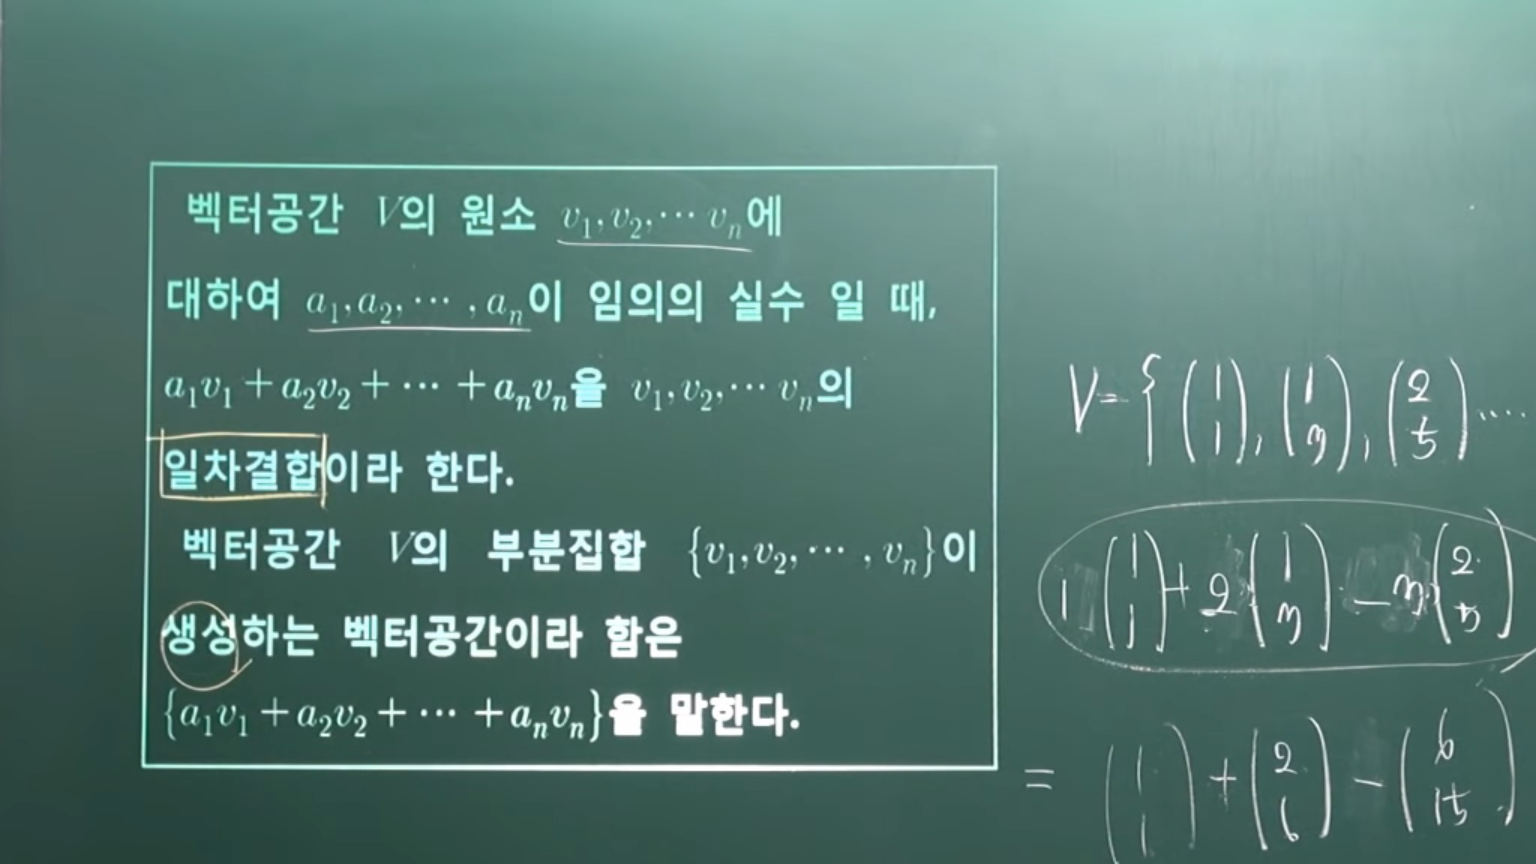 벡터공간 V의 원소 v₁, v₂, ⋯ vₙ에
대하여 a₁, a₂, ⋯ , aₙ이 임의의 실수 일 때,
a₁v₁ + a₂v₂ + ⋯ + aₙvₙ을 v₁, v₂, ⋯ vₙ의
일차결합이라 한다.
벡터공간 V의 부분집합 {v₁, v₂, ⋯ , vₙ}이
생성하는 벡터공간이라 함은
{a₁v₁ + a₂v₂ + ⋯ + aₙvₙ}을 말한다.
V = { (1 1), (1 3), (2 5) ⋯
1 (1 1) + 2 (1 3) − 3 (2 5)
= (1 1) + (2 6) − (6 15)